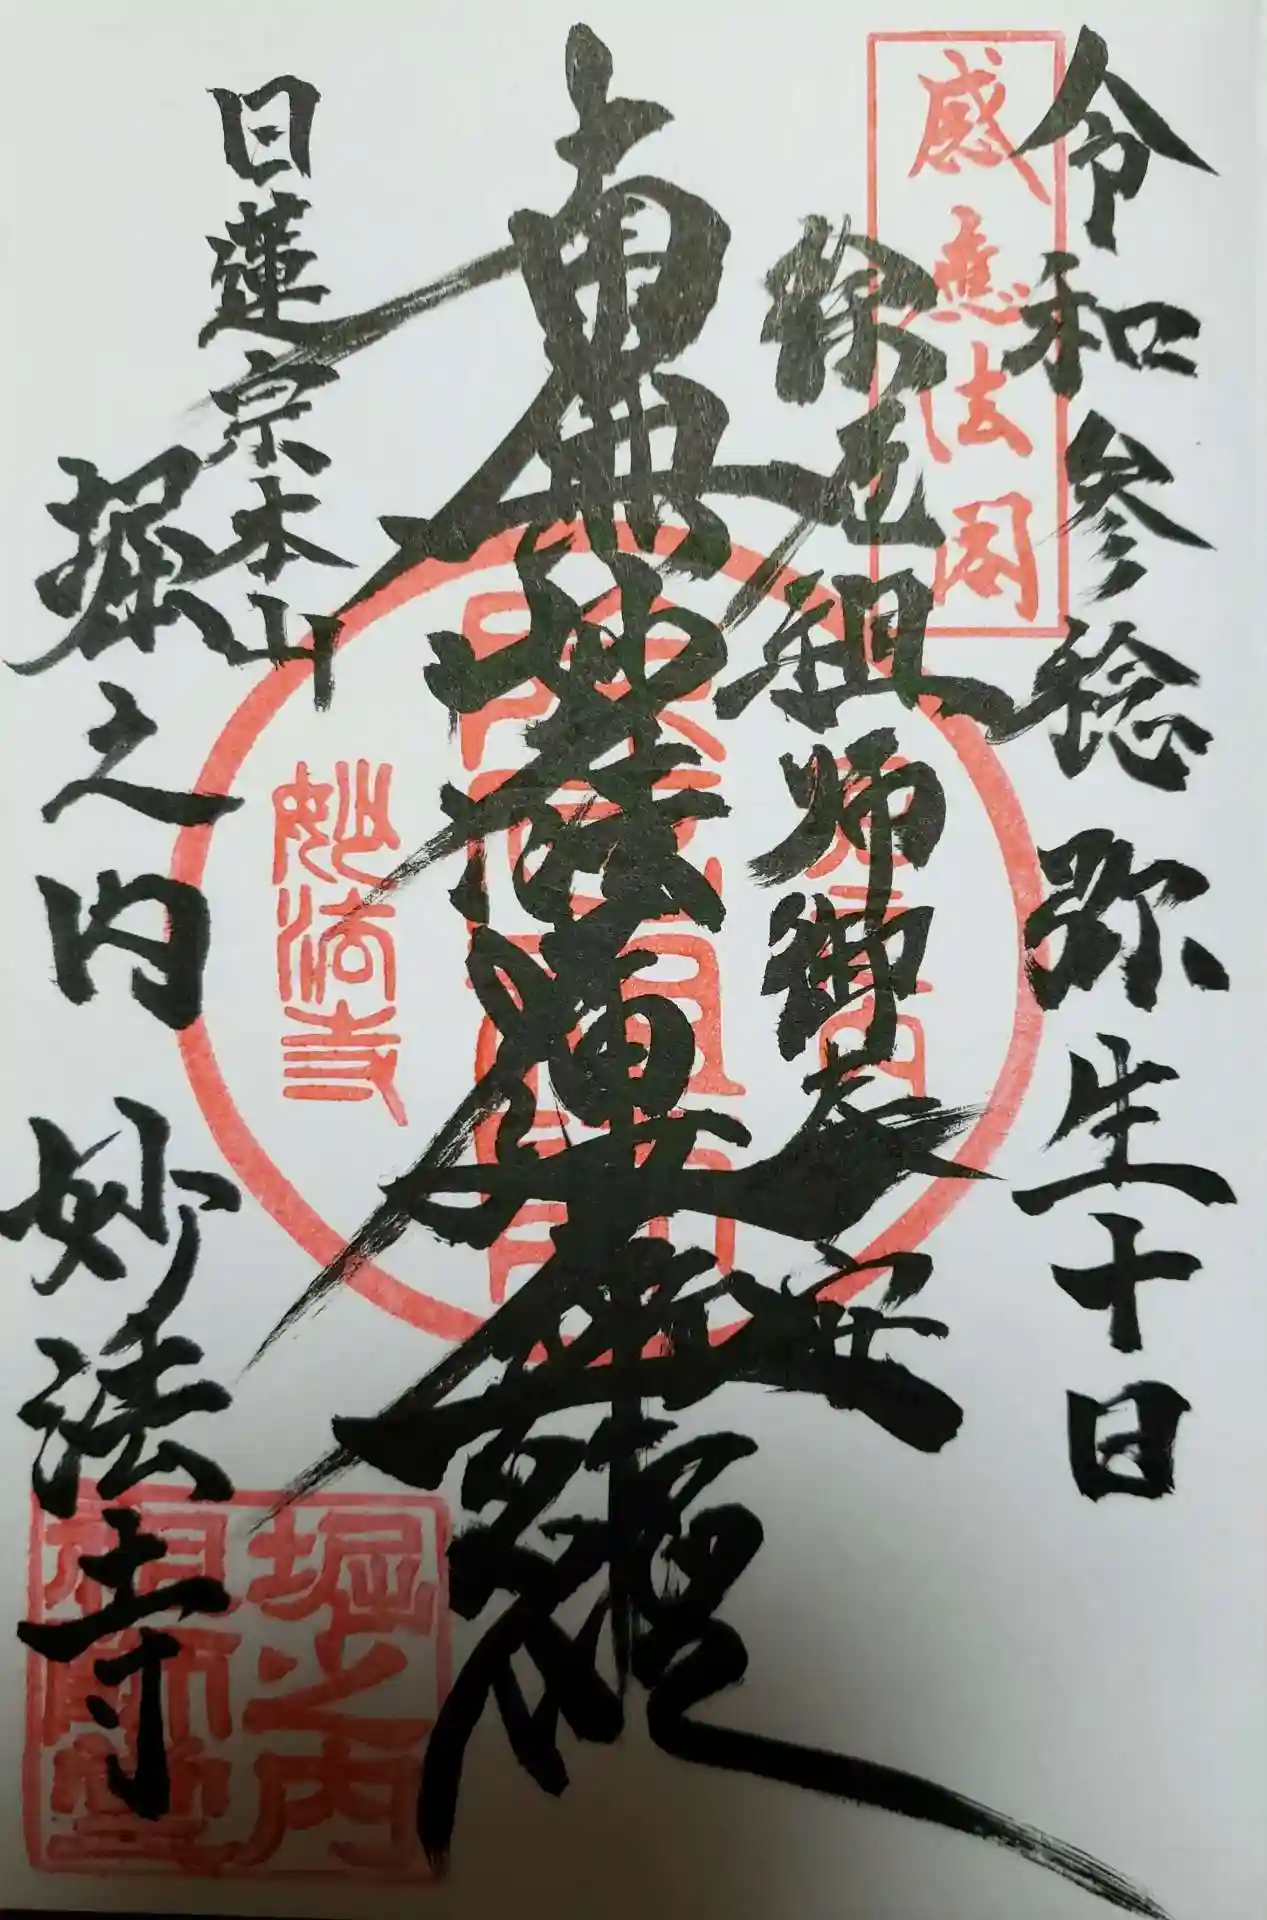 令和参稔弥生十日
感應法閣
除厄祖師御奉安
南無妙法蓮華経
日蓮宗本山
堀之内 妙法寺
妙法寺
堀之内
祖師堂